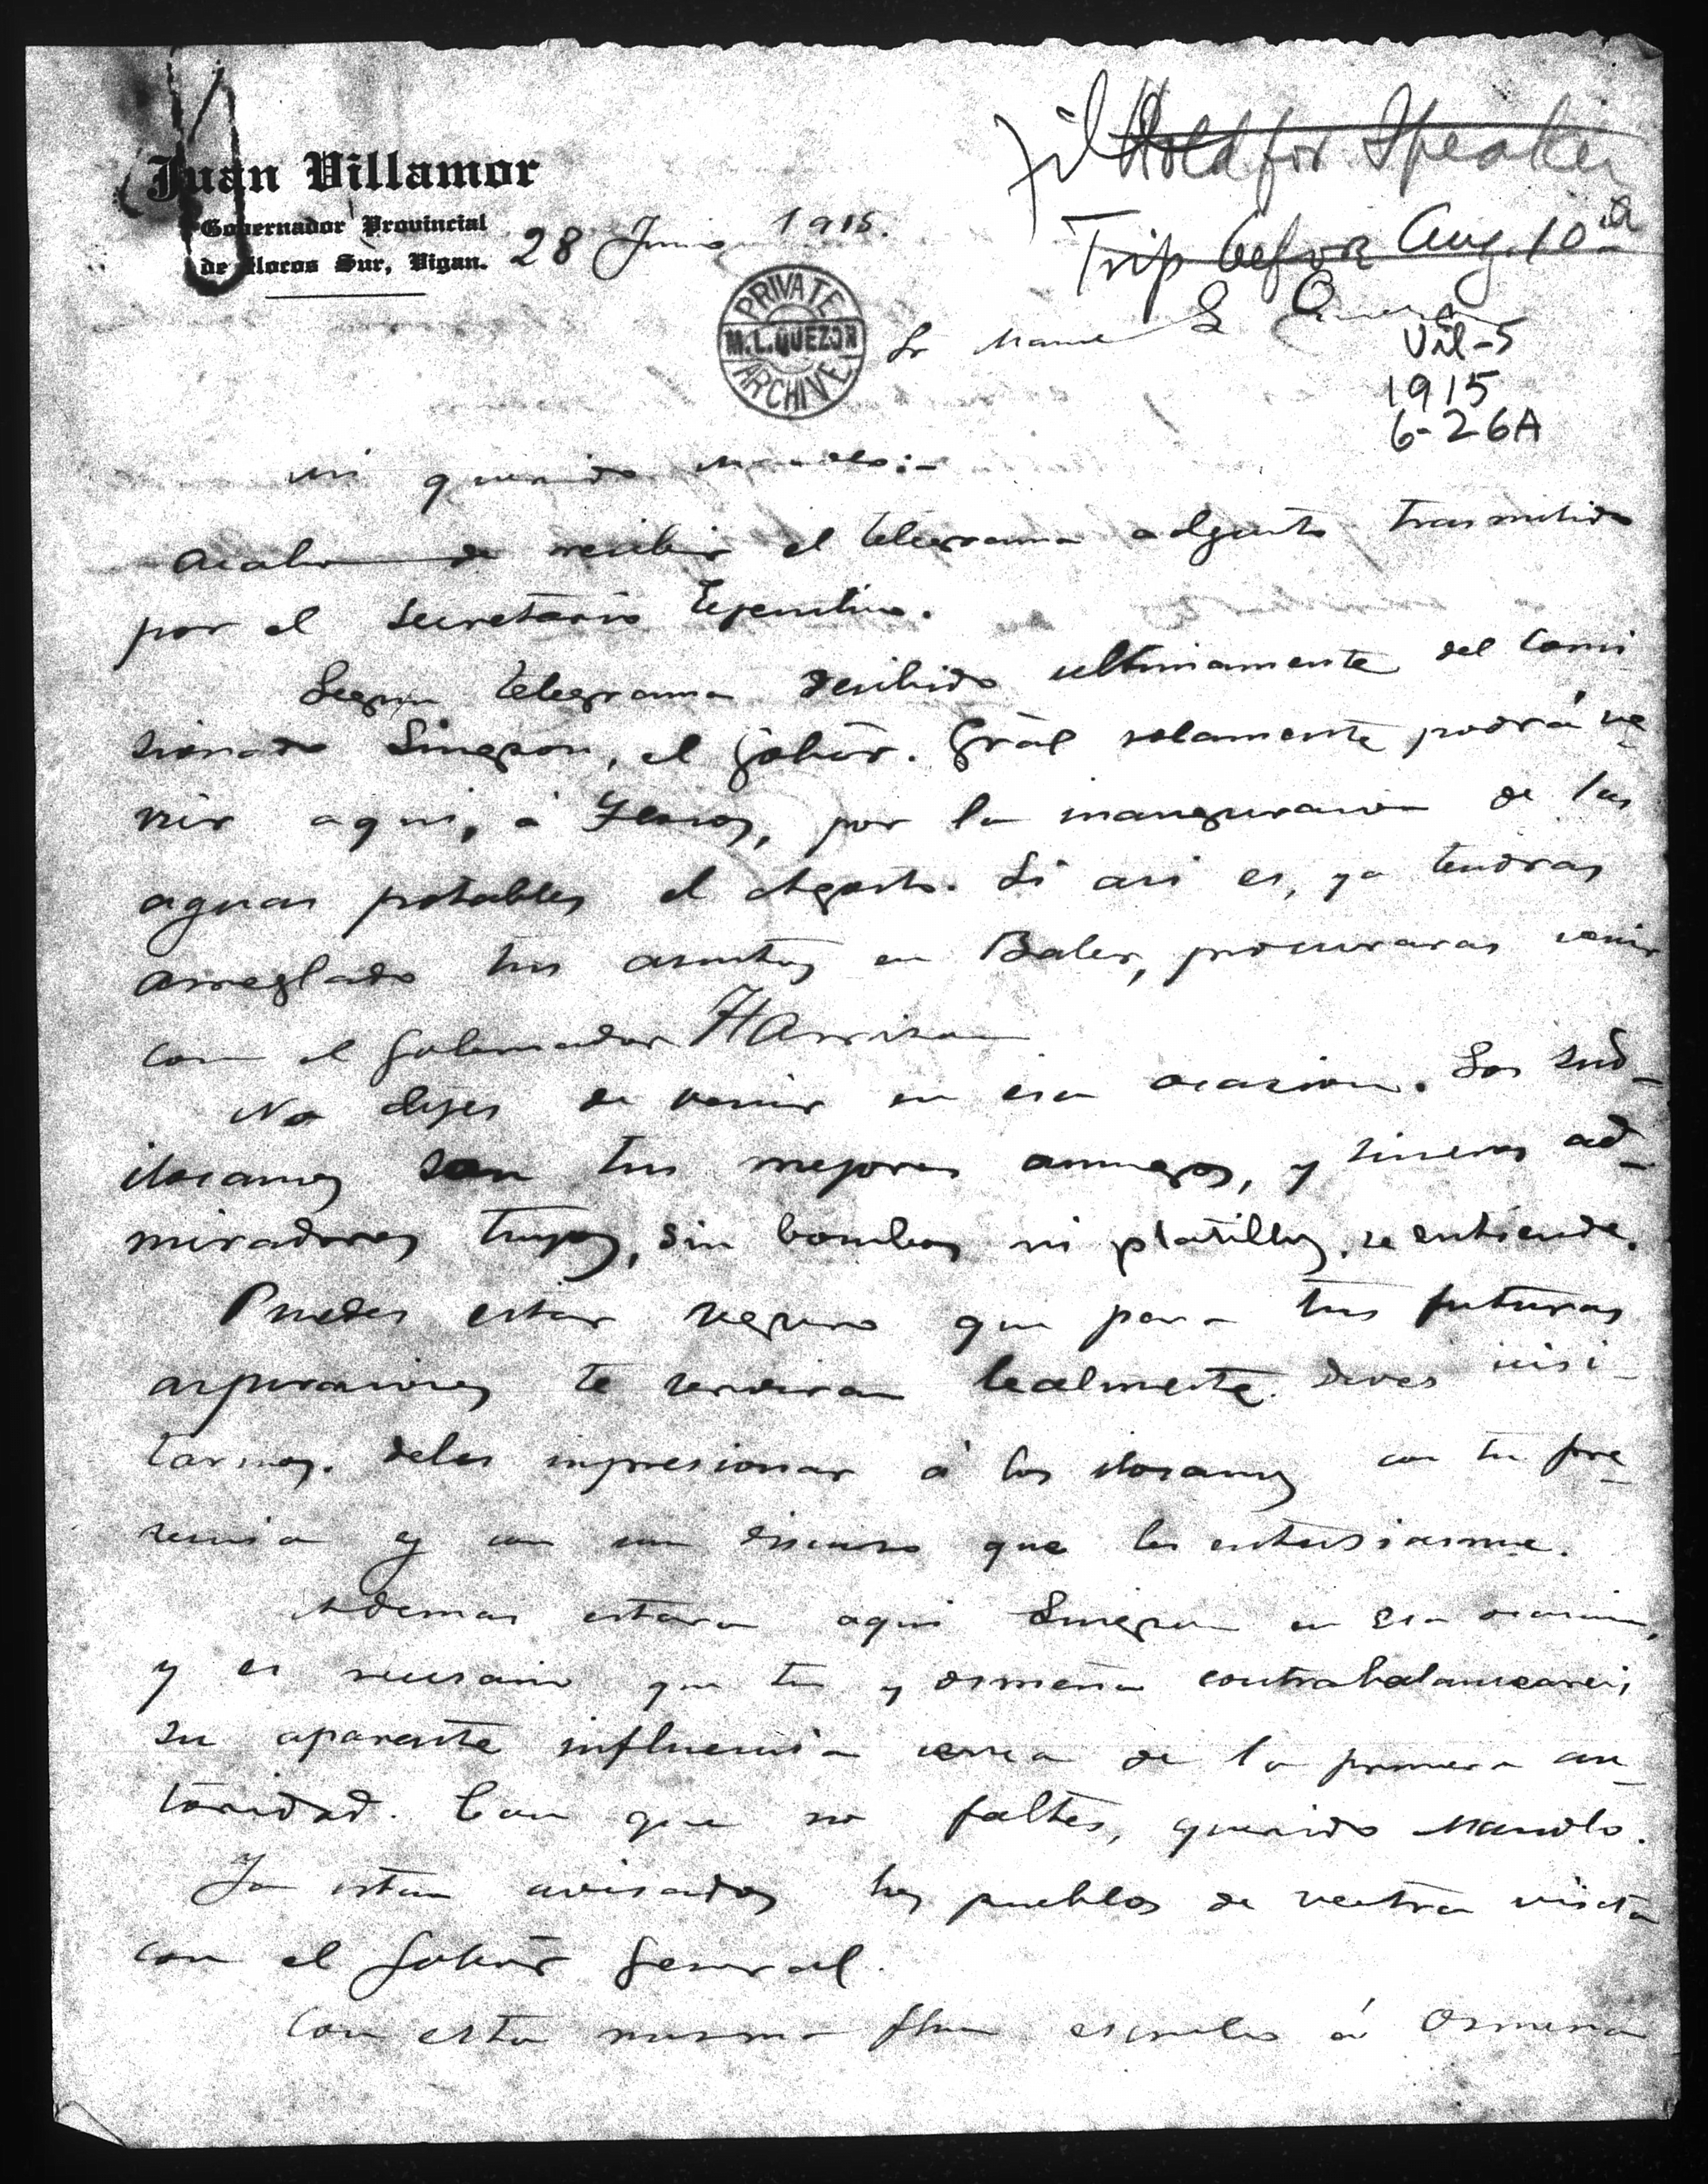 Juan Villamor
Gobernador Provincial
de Ilocos Sur, Vigan.
28 Junio 1915.
Fil Hold for Speaker
Trip before Aug. 10th
PRIVATE
M. L. QUEZON
ARCHIVE
Sr Manuel L Quezon
Vil-5
1915
6-26A
Mi querido Manolo:-
Acabo de recibir el telegrama adjunto trasmitido
por el Secretario Ejecutivo.
Segun telegrama recibido ultimamente del Comi
sionado Singson, el Gobor. Gral solamente podrá ve
nir aqui, á Ilocos, por la inauguracion de las
aguas potables el Agosto. Si asi es, ya tendras
arreglado tus asuntos en Baler, procuraras venir
con el Gobernador Harrison
No dejes de venir en esa ocasion. Los sud-
ilocanos son tus mejores amigos, y sinceros ad-
miradores tuyos, sin bombos ni platillos, se entiende.
Puedes estar seguro que para tus futuras
aspiraciones te serviran lealmente. Deves visi-
tarnos. debes impresionar á los ilocanos con tu pre-
sencia y con un discurso que les entusiasme.
Ademas estara aqui Singson en esa ocasion,
y es necesario que tu y Osmeña contrabalanceareis
su aparente influencia cerca de la primera au-
toridad. Con que no faltes, querido Manolo.
Ya estan avisados los pueblos de vestra visita
con el Gobor General.
Con esta misma fha escribo á Osmeña